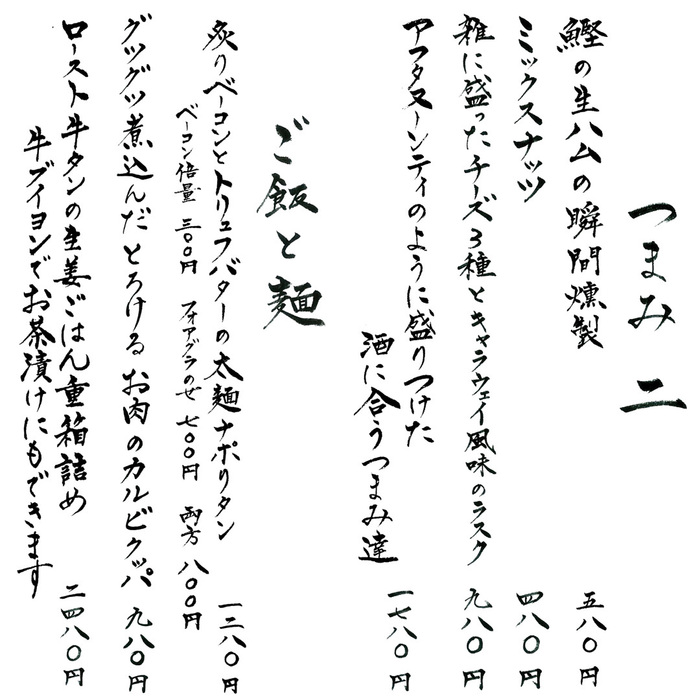 つまみ 二
鰹の生ハムの瞬間燻製 五八〇円
ミックスナッツ 四八〇円
雑に盛ったチーズ3種とキャラウェイ風味のラスク 九八〇円
アフタヌーンティのように盛りつけた
酒に合うつまみ達 一七八〇円
ご飯と麺
炙りベーコンとトリュフバターの太麺ナポリタン 一二八〇円
ベーコン倍量 三〇〇円 フォアグラのせ 七〇〇円 両方 八〇〇円
グツグツ煮込んだとろけるお肉のカルビクッパ 九八〇円
ロースト牛タンの生姜ごはん重箱詰め 二四八〇円
牛ブイヨンでお茶漬けにもできます